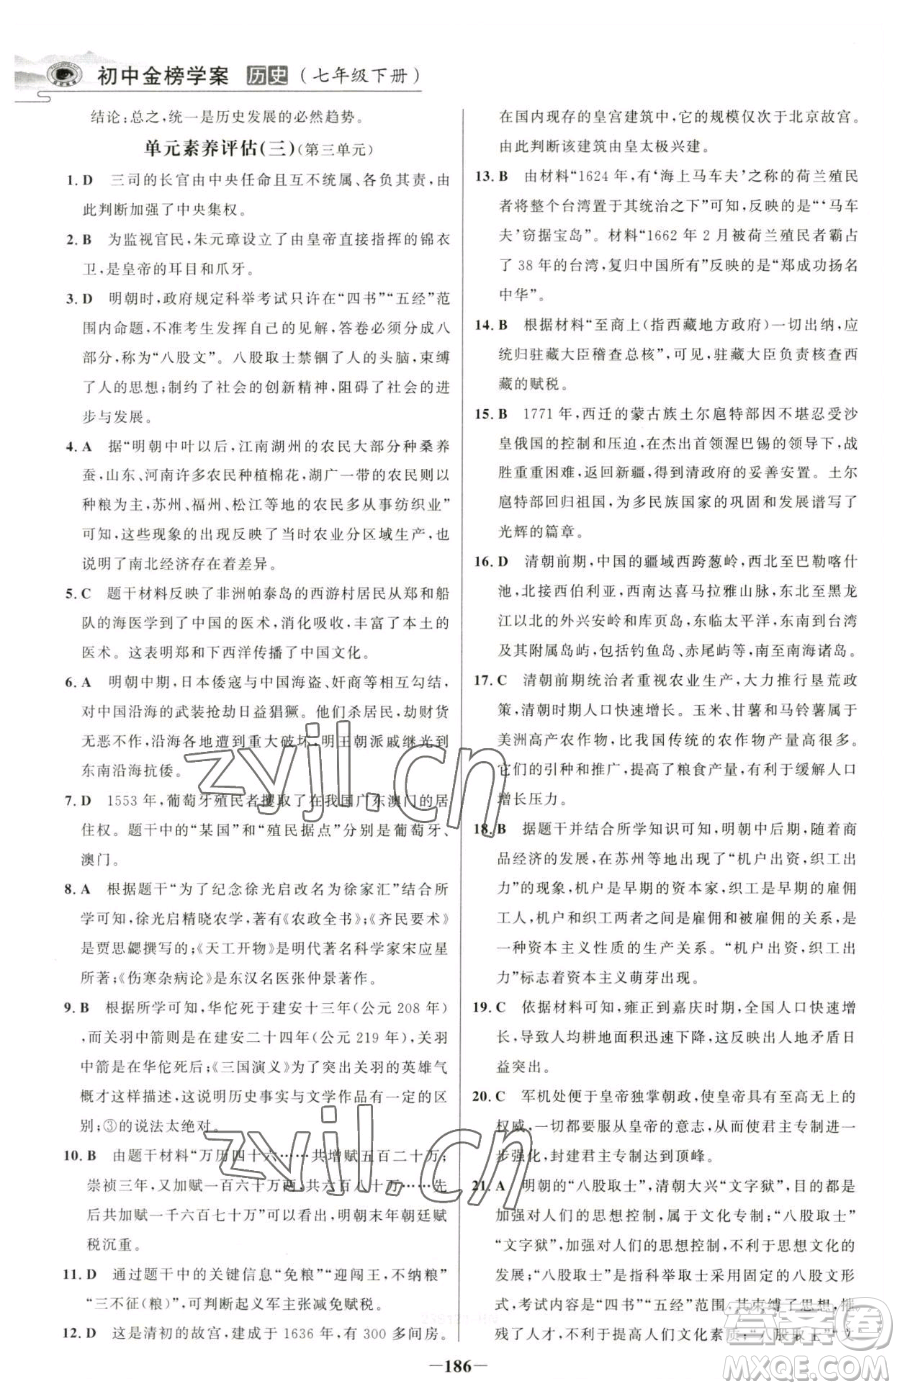 初中金榜学案 历史 (七年级下册)
结论:总之,统一是历史发展的必然趋势。
单元素养评估(三)(第三单元)
1. D 三司的长官由中央任命且互不统属、各负其责,由
此判断加强了中央集权。
2. B 为监视官民,朱元璋设立了由皇帝直接指挥的锦衣
卫,是皇帝的耳目和爪牙。
3. D 明朝时,政府规定科举考试只许在“四书”“五经”范
围内命题,不准考生发挥自己的见解,答卷必须分成八
部分,称为“八股文”。八股取士禁锢了人的头脑,束缚
了人的思想;制约了社会的创新精神,阻碍了社会的进
步与发展。
4. A 据“明朝中叶以后,江南湖州的农民大都种桑养
蚕,山东、河南许多农民种植棉花,湖广一带的农民以
种粮为主,苏州、福州、松江等地的农民多从事纺织业”
可知,这些现象的出现反映了当时农业分区域生产,也
说明了南北经济存在着差异。
5. C 题干材料反映了非洲帕泰岛的西游村居民从郑和船
队的海医学到了中国的医术,消化吸收,丰富了本土的
医术。这表明郑和下西洋传播了中国文化。
6. A 明朝中期,日本倭寇与中国海盗、奸商等相互勾结,
对中国沿海的武装抢劫日益猖獗。他们杀居民,劫财货
无数,沿海各地遭到重大破坏;明王朝派戚继光到
东南沿海抗倭。
7. D 1553年,葡萄牙殖民者攫取了在我国广东澳门的居
住权。题干中的“某国”和“殖民据点”分别是葡萄牙、
澳门。
8. A 根据题干“为了纪念徐光启改名为徐家汇”结合所
学可知,徐光启精晓农学,著有《农政全书》;《齐民要术》
是贾思勰撰写的;《天工开物》是明代著名科学家宋应星
所著;《伤寒杂病论》是东汉名医张仲景著作。
9. B 根据所学可知,华佗死于建安十三年(公元208年),
而关羽中箭则是在建安二十四年(公元219年),关羽
中箭时华佗已死。《三国演义》为了突出关羽的英雄气
概才这样描写,这说明历史事实与文学作品有一定的区
别;③的说法太绝对。
10. B 由题干材料“万历四十六……共增赋五百二十万;
崇祯三年,又增赋一百六十万两,共六百八十万……后又
增赋一千六百七十万”可以看出,明朝末年朝廷赋
税沉重。
11. D 通过题干中的关键信息“免粮”“迎闯王,不纳粮”
“三不征(粮)”,可判断起义军主张减免赋税。
12. D 这是清初的故宫,建成于1636年,有300多间房。
在国内现存的皇宫建筑中,它的规模仅次于北京故宫。
由此判断该建筑由皇太极兴建。
13. B 由材料“1624年,有‘海上马车夫’之称的荷兰殖民
者将整个台湾置于其统治之下”可知,反映的是“‘马车
夫’窃据宝岛”。材料“1662年2月被荷兰殖民者霸占
了38年的台湾,复归中国所有”反映的是“郑成功扬名
中华”。
14. B 根据材料“至商上(指西藏地方政府)一切出纳,应
统归驻藏大臣稽查总核”,可见,驻藏大臣负责核查西
藏的赋税。
15. B 1771年,西迁的蒙古族土尔扈特部因不堪忍受沙
皇俄国的控制和压迫,在杰出首领渥巴锡的带领下,战
胜重重困难,返回新疆,得到清政府的妥善安置。土尔
扈特部回归祖国,为多民族国家的巩固和发展谱写了
光辉的篇章。
16. D 清朝前期,中国的疆域西跨葱岭,西北至巴勒喀什
池,北接西伯利亚,西南达喜马拉雅山脉,东北至黑龙江
以北的外兴安岭和库页岛,东临太平洋,东南到台湾
及其附属岛屿,包括钓鱼岛、赤尾屿等,南至南海诸岛。
17. C 清朝前期统治者重视农业生产,大力推行垦荒政
策,清朝时期人口快速增长。玉米、甘薯和马铃薯属于
美洲高产农作物,比我国传统的农作物产量高很多。
它们的引种和推广,提高了粮食产量,有利于缓解人口
增长压力。
18. B 据题干并结合所学知识可知,明朝中后期,随着商
品经济的发展,在苏州等地出现了“机户出资,织工出
力”的现象,机户是早期的资本家,织工是早期的雇佣
工人,机户和织工两者之间是雇佣和被雇佣的关系,是
一种资本主义性质的生产关系。“机户出资,织工出
力”标志着资本主义萌芽出现。
19. C 依据材料可知,雍正到嘉庆时期,全国人口快速增
长,导致人均耕地面积迅速下降,这反映出人地矛盾日
益突出。
20. C 军机处便于皇帝独掌朝政,具有高度集权的特点,
一切政令都要服从皇帝的意志,有利于君主专制制度的
强化,封建君主专制达到了顶峰。
21. A 明朝的“八股取士”,清朝大兴“文字狱”,目的都是
加强对人们的思想控制,属于文化专制;“八股取士”
“文字狱”,加强对人们的思想控制,不利于思想文化的
发展;“八股取士”是指科举考试采用固定的八股文形
式,考试内容是“四书”“五经”范围内的内容,摧
残了人才,不利于人们文化素质;“八股取士”“文
186
zyjl.cn
zyjl.cn
答案圈
MXQE.COM